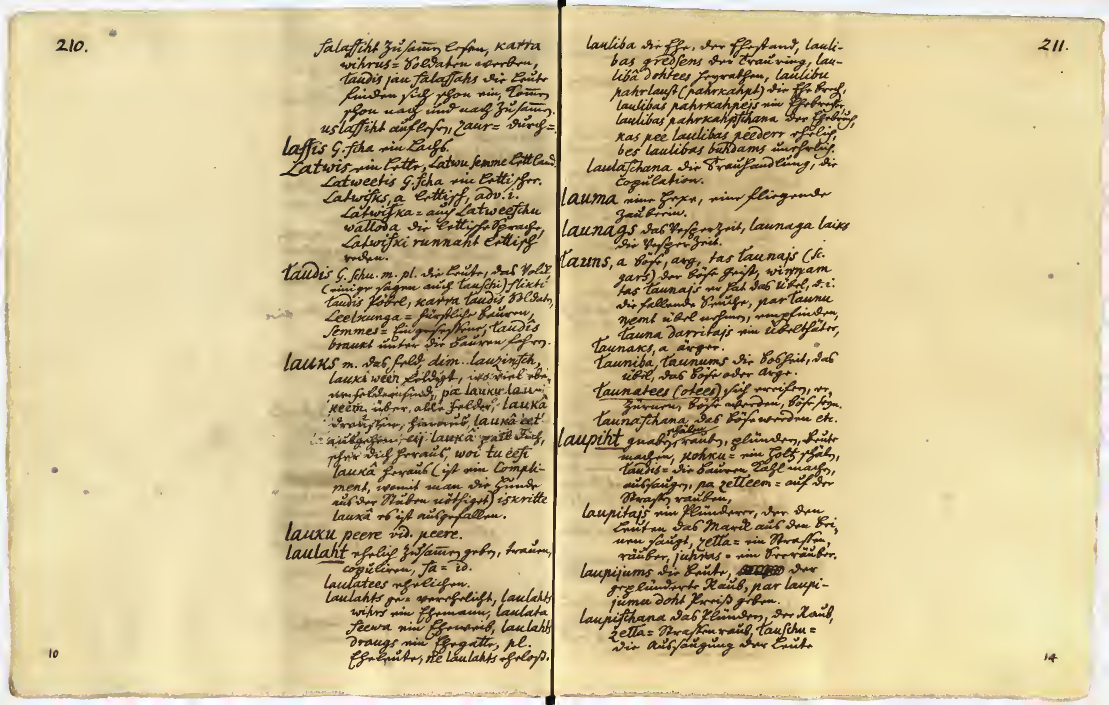 210.
salassiht zusamm lesen, karra
wihrus = Soldaten werben,
laudis jau salassahs die Leute
finden sich schon ein, komen
schon nach und nach zusamm.
uslassiht auflesen, zaur= durch=
lassis G. scha ein Lachs.
Latwis ein Lette, Latwu semme Lettland.
Latweetis G. scha ein Lettischer.
Latwisks, a Lettisch, adv. i.
Latwiska = auch Latweeschu
walloda die Lettische Sprache,
Latwiski runnaht Lettisch
reden.
laudis G. schu. m. pl. die Leute, das Volk,
(einige sagen auch lauschi) slikti
laudis Pöbel, karra laudis Soldaten,
Leelkunga = fürstliche Bauren,
semmes = Eingesessene, laudîs
braukt unter die Bauren fahren.
lauks m. das Feld dim. lauzinsch,
pa lauku lau-
keem über alle Felder, laukâ
draussen, hinaus, laukâ eet
ausgehen, ej laukâ pack dich,
scher dich heraus, woi tu eesi
laukâ heraus (ist ein Compli-
ment, womit man die Hunde
aus der Stuben nöthiget) iskritte
laukâ es ist ausgefallen.
lauku peere vid. peere.
laulaht ehelich zusamm geben, trauen,
copuliren, sa = id.
laulatees ehelichen.
laulahts ge= verehelicht, laulahts
wihrs ein Ehemann, laulata
seewa ein Eheweib, laulahts
draugs ein Ehegatte, pl.
Eheleute, ne laulahts ehelos.
10
211.
lauliba die Ehe, der Ehestand, lauli-
bas gredsens der Trauring, lau-
libâ dohtees heyrathen, laulibu
pahrlaust (pahrkahpt) die Ehe brech,
laulibas pahrkahpejs ein Ehebrecher,
laulibas pahrkahpschana der Ehebruch,
kas pee laulibas peederr ehelich,
bes laulibas buhdams unehelich.
laulaschana die Trauhandlung, die
Copulation.
lauma eine Hexe, eine fliegende
Zauberin.
launags das Vesperzeit, launaga laiks
die Vesperzeit.
launs, a böse, arg, tas launajs (sc.
gars) der böse Geist, winnam
tas launajs er hat das übel, d. i.
die fallende Seuche, par launu
nemt übel nehmen, empfinden,
launa darritajs ein Übelthäter,
launaks, a ärger.
launiba, launums die Bosheit, das
übel, das böse oder Arge.
launatees (otees) sich ereifern, er-
zürnen, böse werden, böse seyn.
launaschana das böse werden etc.
laupiht rauben, plündern, Beute
machen, kohku = ein Holtz schälen,
laudis = die Bauren kahl machen,
aussaugen, pa zelleem = auf der
Strassen rauben,
laupitajs ein Plünderer, der den
Leuten das Marck aus den Bei-
nen saugt, zella = ein Strassen-
räuber, juhras = ein Seeräuber.
laupijums die Beute, der
geplünderte Raub, par laupi-
jumu doht Preiss geben.
laupischana das Plündern, der Raub,
zella = Strassenraub, lauschu =
die Aussaugung der Leute
14